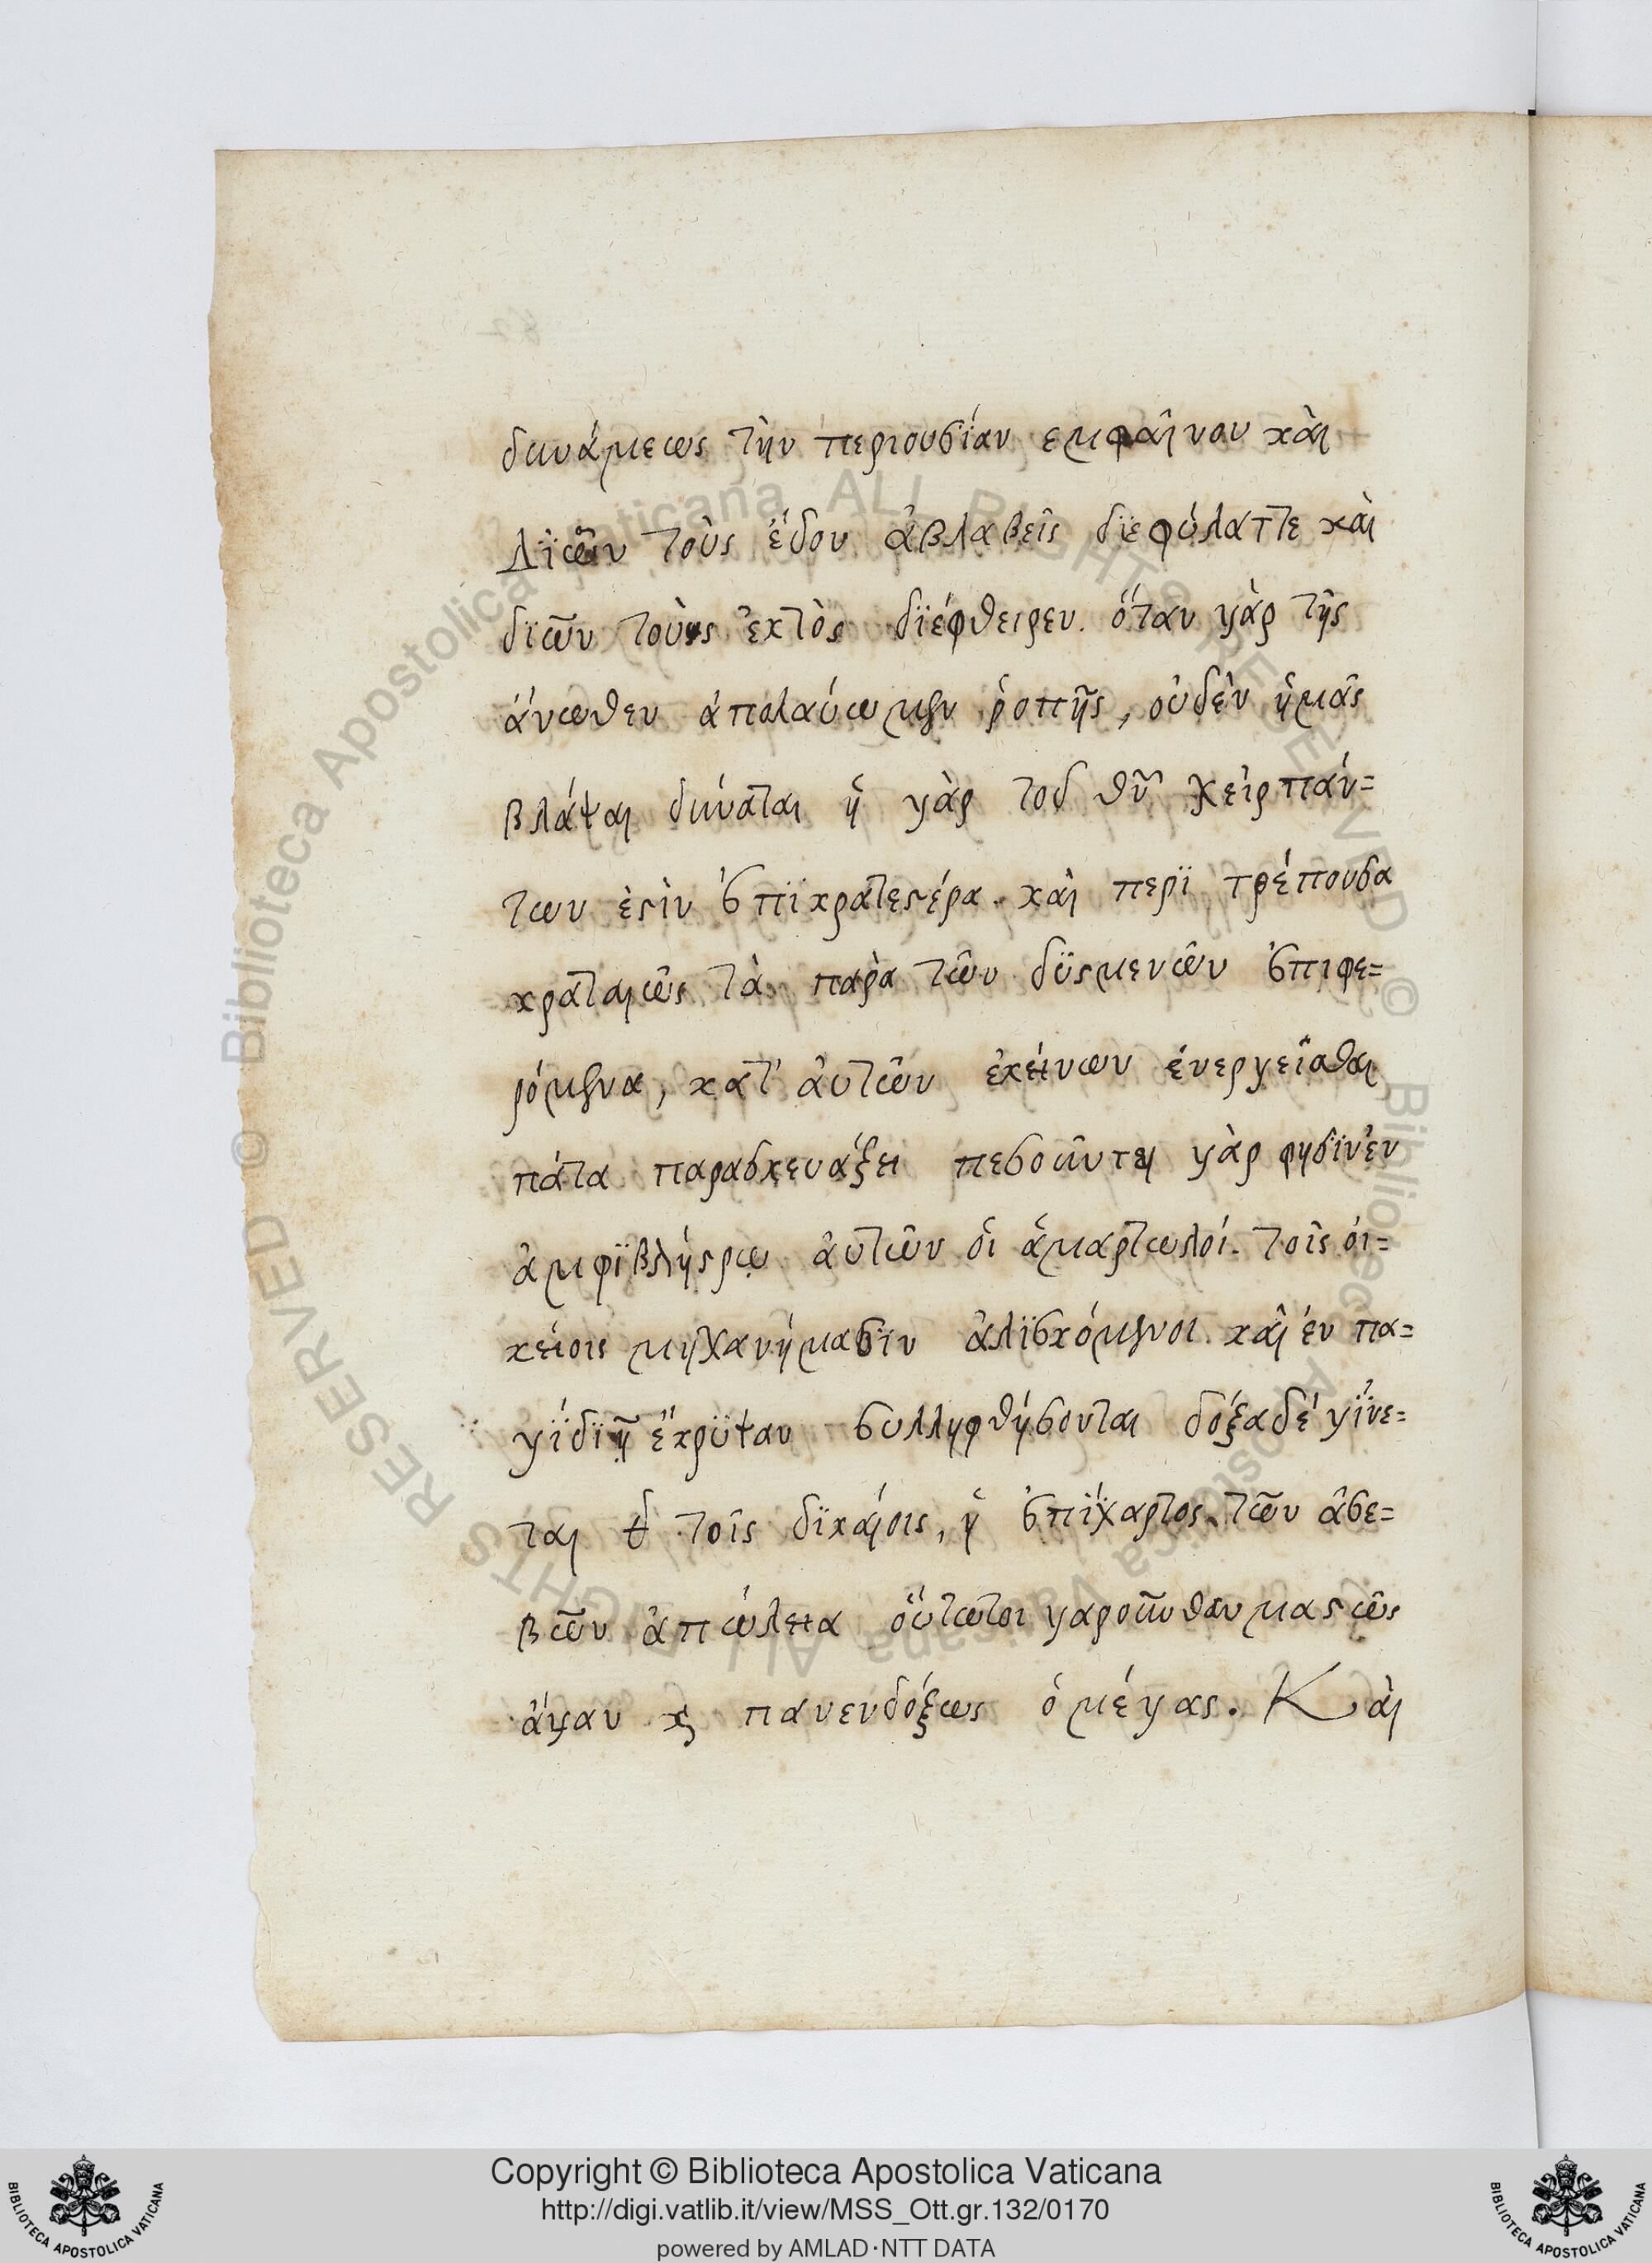 δυνάμεως τὴν περιουσίαν εμφαῖνον καὶ
Δϊῶν τοὺς ἔδον ἀβλαβεῖς δϊεφύλαττε καὶ
δϊῶν τοὺς ἐκτὸς δϊέφθειρεν. ὅταν γὰρ τῆς
άνωθεν ἀπολαύωμεν ῥοπῆς, οὐδὲν ἡμᾶς
βλάψαι δύναται ἡ γὰρ τοῦ θῦ χεὶρ πάν=
των ἐϛὶν ἐπϊκρατεϛέρα. καὶ περϊ τρέπουσα
κραταιῶς τὰ παρὰ τῶν δϋσμενῶν ἐπιφε=
ρόμενα, κατ' ἀυτῶν ἐκείνων ἐνεργεῖσθαι
πάτα παρασκευάξει πεσοῦνται γὰρ φησϊν ἐν
ἀμφϊβλήϛρῳ ἀυτῶν ὁι ἁμαρτωλοί. τοῖς ὀι=
κείοις μηχανήμασϊν ἁλϊσκόμενοι. καὶ ἐν πα=
γΐδϊ ῇ ἔκρϋψαν συλληφθήσονται δόξα δέ γΐνε=
ται τοῖς δϊκαίοις, ἡ ἐπΐχαρτος τῶν ἀσε=
βῶν ἀπώλεια ὅυτω τοι γαροῦν θαυμαϛῶς
ἄγαν ϗ πανενδόξως ὁ μέγας. Καὶ
Copyright © Biblioteca Apostolica Vaticana
http://digi.vatlib.it/view/MSS_Ott.gr.132/0170
powered by AMLAD·NTT DATA